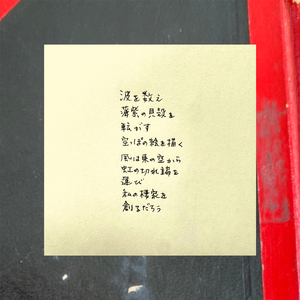 波を数え
薄紫の貝殻を
転がす
空っぽの絵を描く
風は東の空から
虹の切れ端を
運び
私の標本を
創るだろう